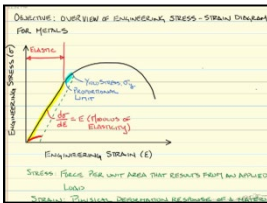 OBJECTIVE: OVERVIEW OF ENGINEERING STRESS-STRAIN DIAGRAM
FOR METALS
ELASTIC
YIELD STRESS σy
PROPORTIONAL
LIMIT
dσ/dε = E (MODULUS OF
ELASTICITY)
ENGINEERING STRESS (σ)
ENGINEERING STRAIN (ε)
STRESS: FORCE PER UNIT AREA THAT RESULTS FROM AN APPLIED
LOAD
STRAIN: PHYSICAL DEFORMATION RESPONSE OF A MATERIAL